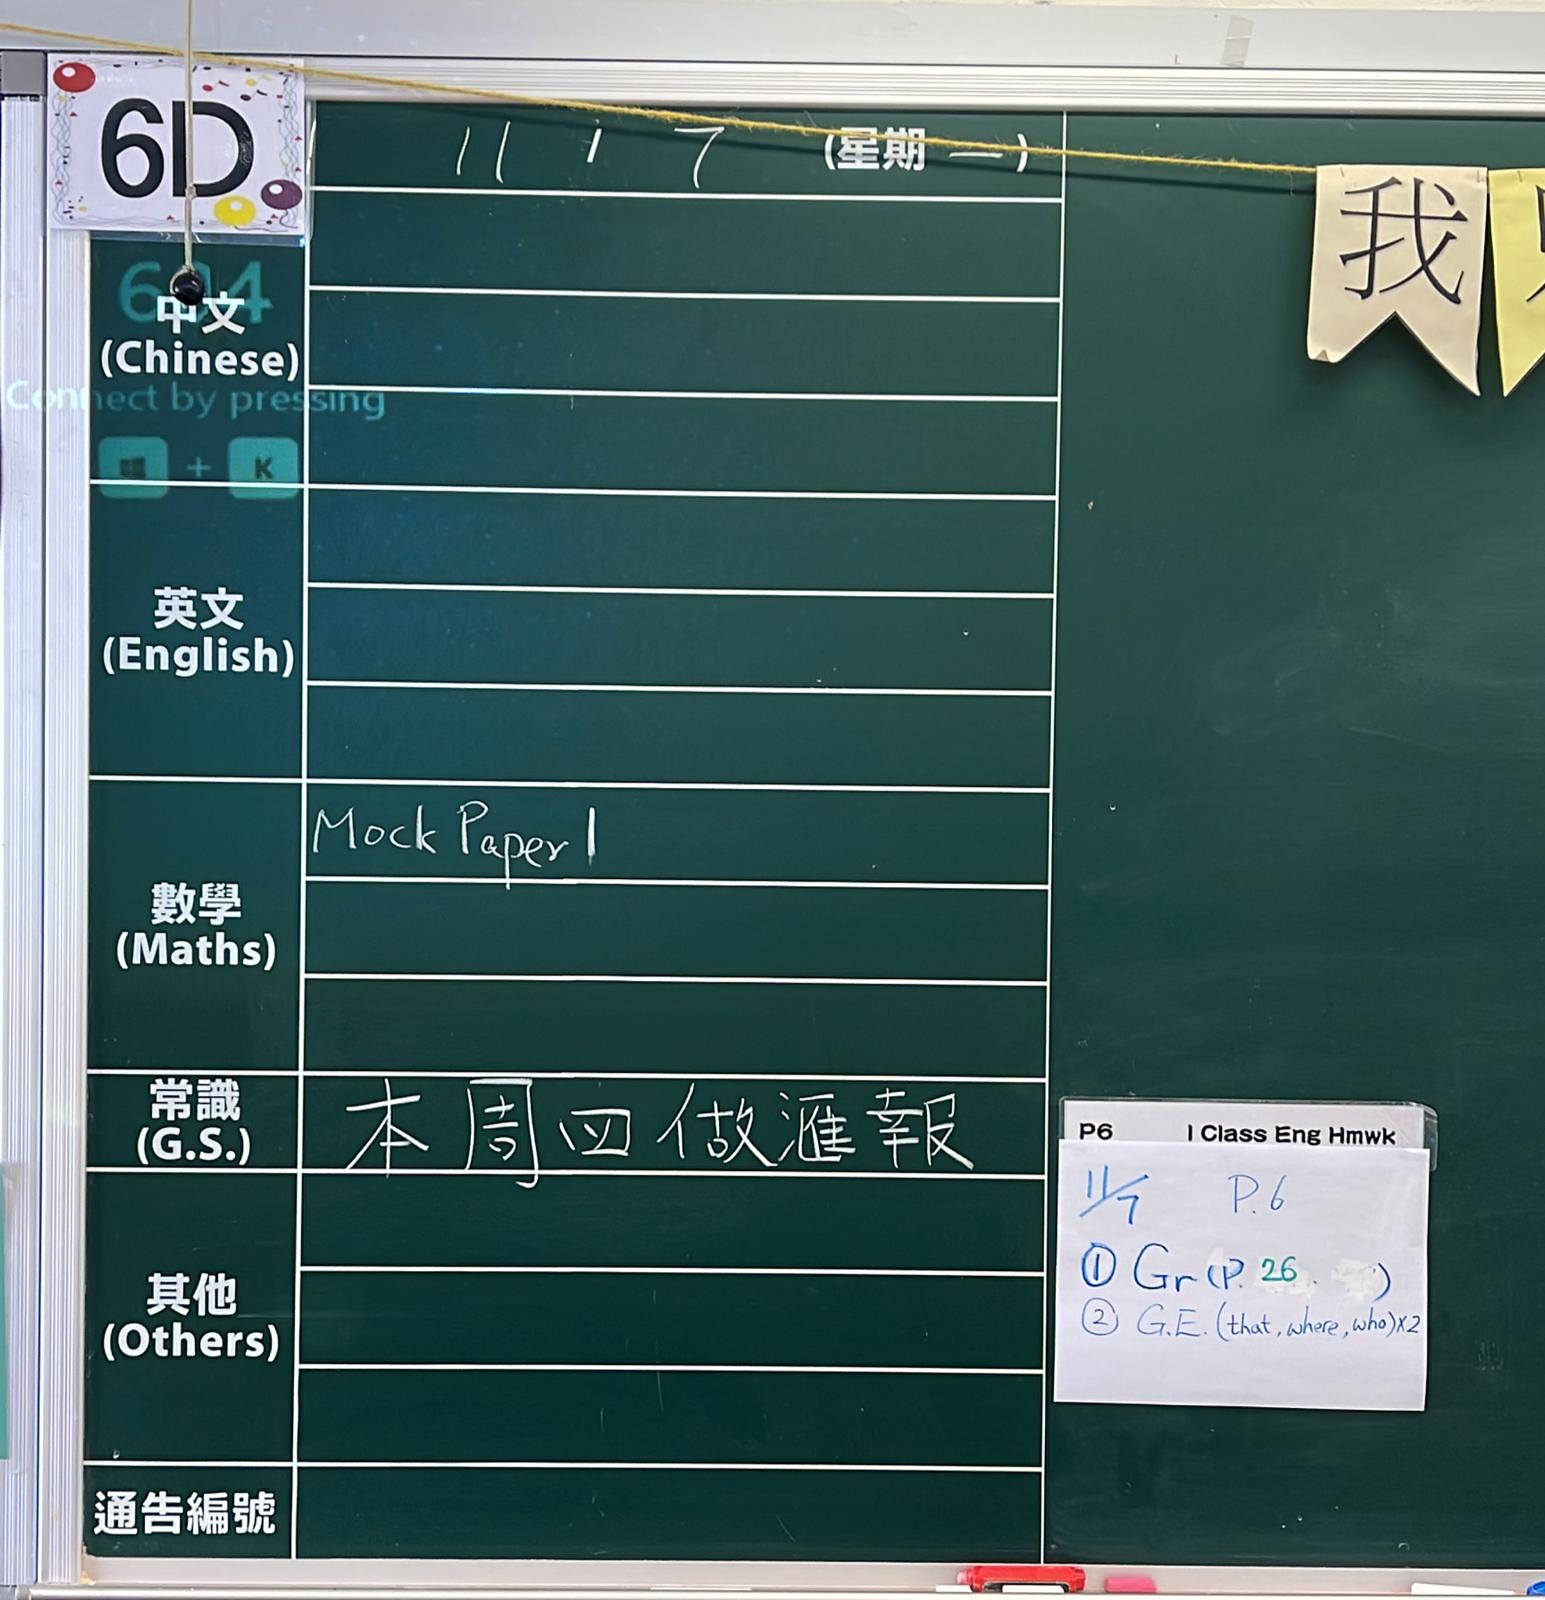 6D
11 / 7 (星期一)
我
604
中文
(Chinese)
Connect by pressing
+ K
英文
(English)
Mock Paper 1
數學
(Maths)
常識
(G.S.)
本周四做滙報
P6 1 Class Eng Hmwk
11/7 P.6
① Gr (P. 26. )
② G.E. (that, where, who)x2
其他
(Others)
通告編號